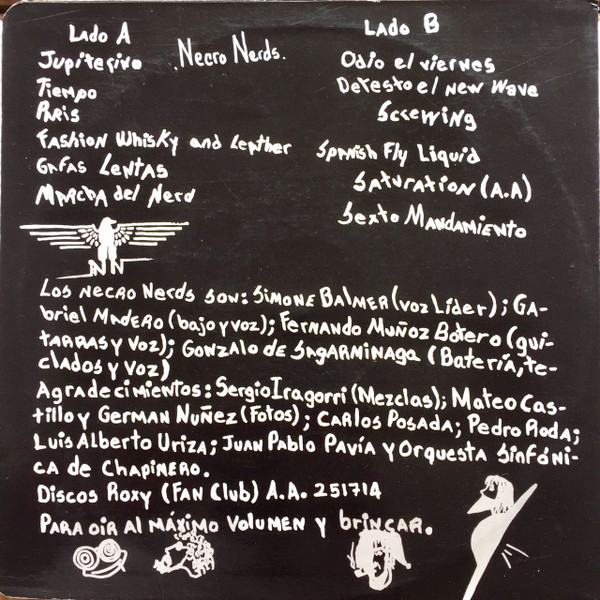 Lado A
Necro Nerds.
Jupiterino
Tiempo
Paris
Fashion Whisky and Leather
Gafas Lentas
Marcha del Nerd
Lado B
Odio el viernes
Detesto el New Wave
Screwing
Spanish Fly Liquid
Saturation (A.A)
Sexto Mandamiento
NN
Los Necro Nerds son: Simone Balmer (voz Líder); Ga-
briel Madero (bajo y voz); Fernando Muñoz Botero (gui-
tarras y voz); Gonzalo de Sagarminaga (Batería, te-
clados y voz)
Agradecimientos: Sergio Iragorri (Mezclas); Mateo Cas-
tillo y German Nuñez (Fotos); Carlos Posada; Pedro Roda;
Luis Alberto Uriza; Juan Pablo Pavía y Orquesta Sinfóni-
ca de Chapinero.
Discos Roxy (Fan Club) A.A. 251714
Para oir al máximo volumen y brincar.